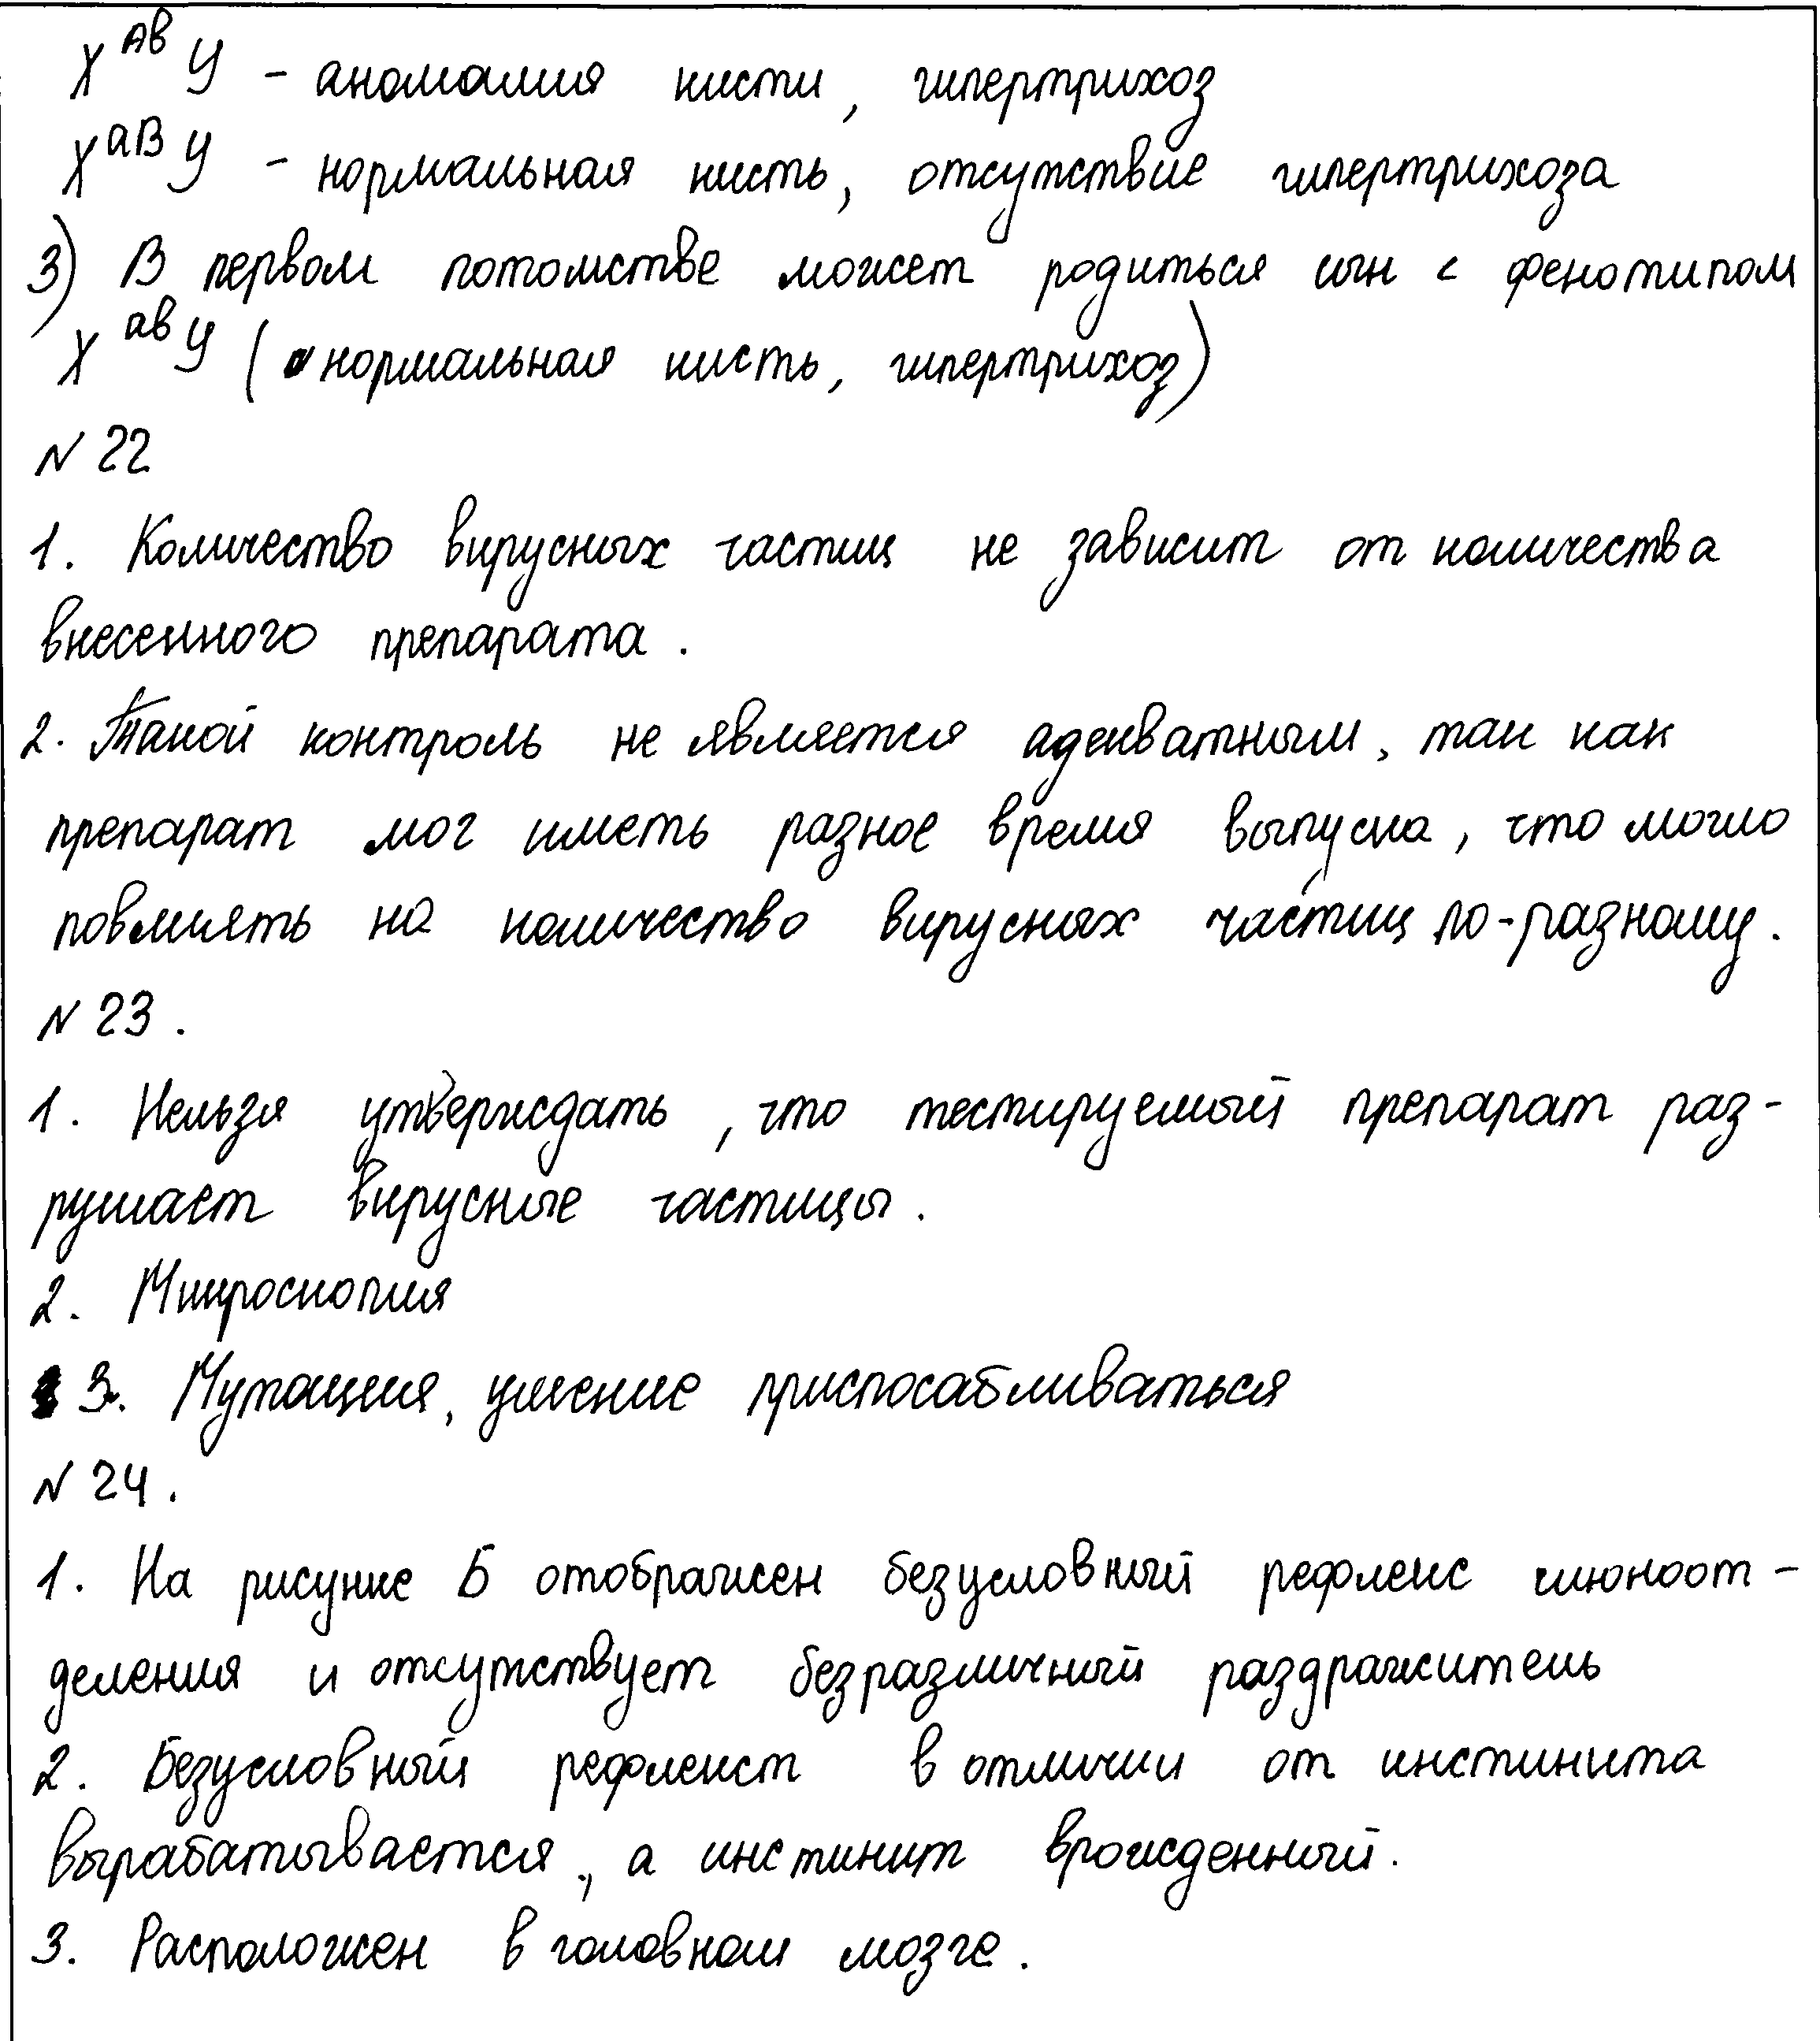 X^Ab У - аномалия кисти, гипертрихоз
X^aB У - нормальная кисть, отсутствие гипертрихоза
3) В первом потомстве может родиться сын с фенотипом
X^ab У (нормальная кисть, гипертрихоз)
N 22
1. Количество вирусных частиц не зависит от количества
внесенного препарата.
2. Такой контроль не является адекватным, так как
препарат мог иметь разное время выпуска, что могло
повлиять на количество вирусных частиц по-разному.
N 23.
1. Нельзя утверждать, что тестируемый препарат раз-
рушает вирусные частицы.
2. Микроскопия
3. Мутация, умение приспосабливаться
N 24.
1. На рисунке Б отображен безусловный рефлекс слюноот-
деления и отсутствует безразличный раздражитель
2. Безусловный рефлекст в отличии от инстинкта
вырабатывается, а инстинкт врожденный.
3. Расположен в головном мозге.